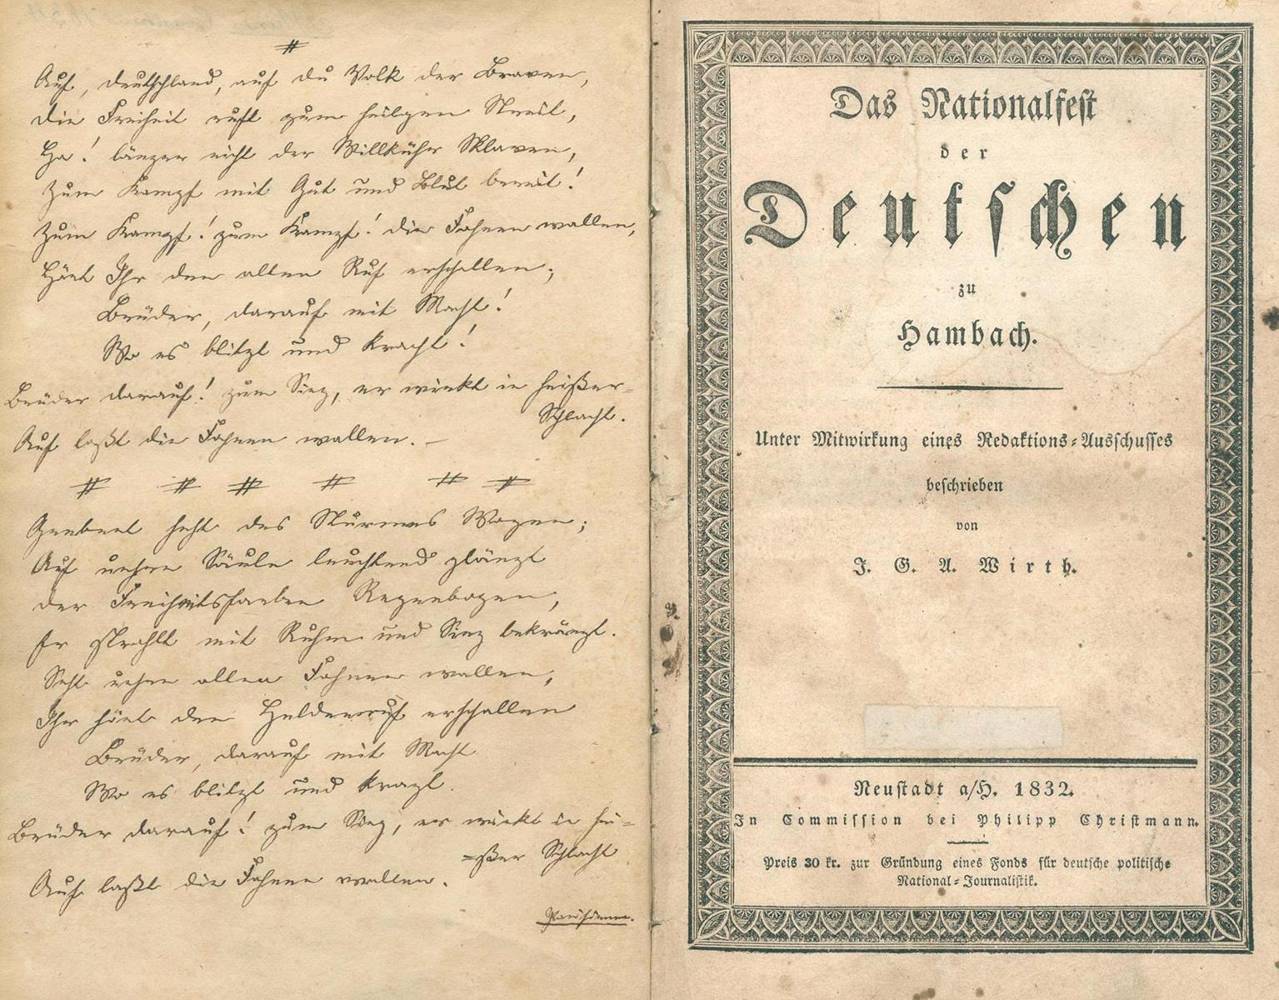 #
Auf, Deutschland, auf du Volk der Braven,
Die Freiheit ruft zum heilgen Streit,
Ha! länger nicht der Willkühr Sklaven,
Zum Kampf mit Gut und Blut bereit!
Zum Kampf! zum Kampf! die Fahnen wallen,
Hört Ihr den alten Ruf erschallen;
Brüder, darauf mit Macht!
Wo es blitzt und kracht!
Brüder darauf! zum Sieg, er winkt in heißer-
Schlacht.
Auf laßt die Fahnen wallen. –
# # # # # #
Geebnet steht des Sturmes Wogen;
Auf Säule leuchtend glänzt
der Freiheitsfarben Regenbogen,
Er strahlt mit Ruhm und Sieg bekränzt.
Seht allen Fahnen wallen,
Ihr hört den Heldenruf erschallen
Brüder, darauf mit Macht
Wo es blitzt und kragt.
Brüder darauf! zum Sieg, er winkt in hei=
=ßer Schlacht
Auf laßt die Fahnen wallen.
Das Nationalfest
der
Deutschen
zu
Hambach.
Unter Mitwirkung eines Redaktions=Ausschusses
beschrieben
von
J. G. A. Wirth.
Neustadt a/H. 1832.
In Commission bei Philipp Christmann.
Preis 30 kr. zur Gründung eines Fonds für deutsche politische
National=Journalistik.